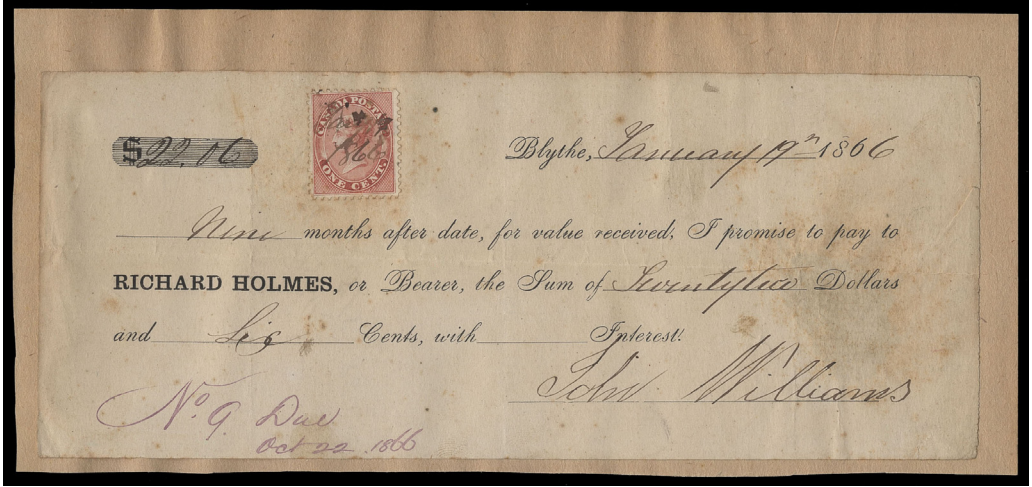 $22.06
CANADA POSTAGE
1866
ONE CENT.
Blythe, January 19th 1866
Nine months after date, for value received, I promise to pay to
RICHARD HOLMES, or Bearer, the Sum of Twentytwo Dollars
and Six Cents, with Interest.
John Williams
No 9 Due
Oct 22 1866